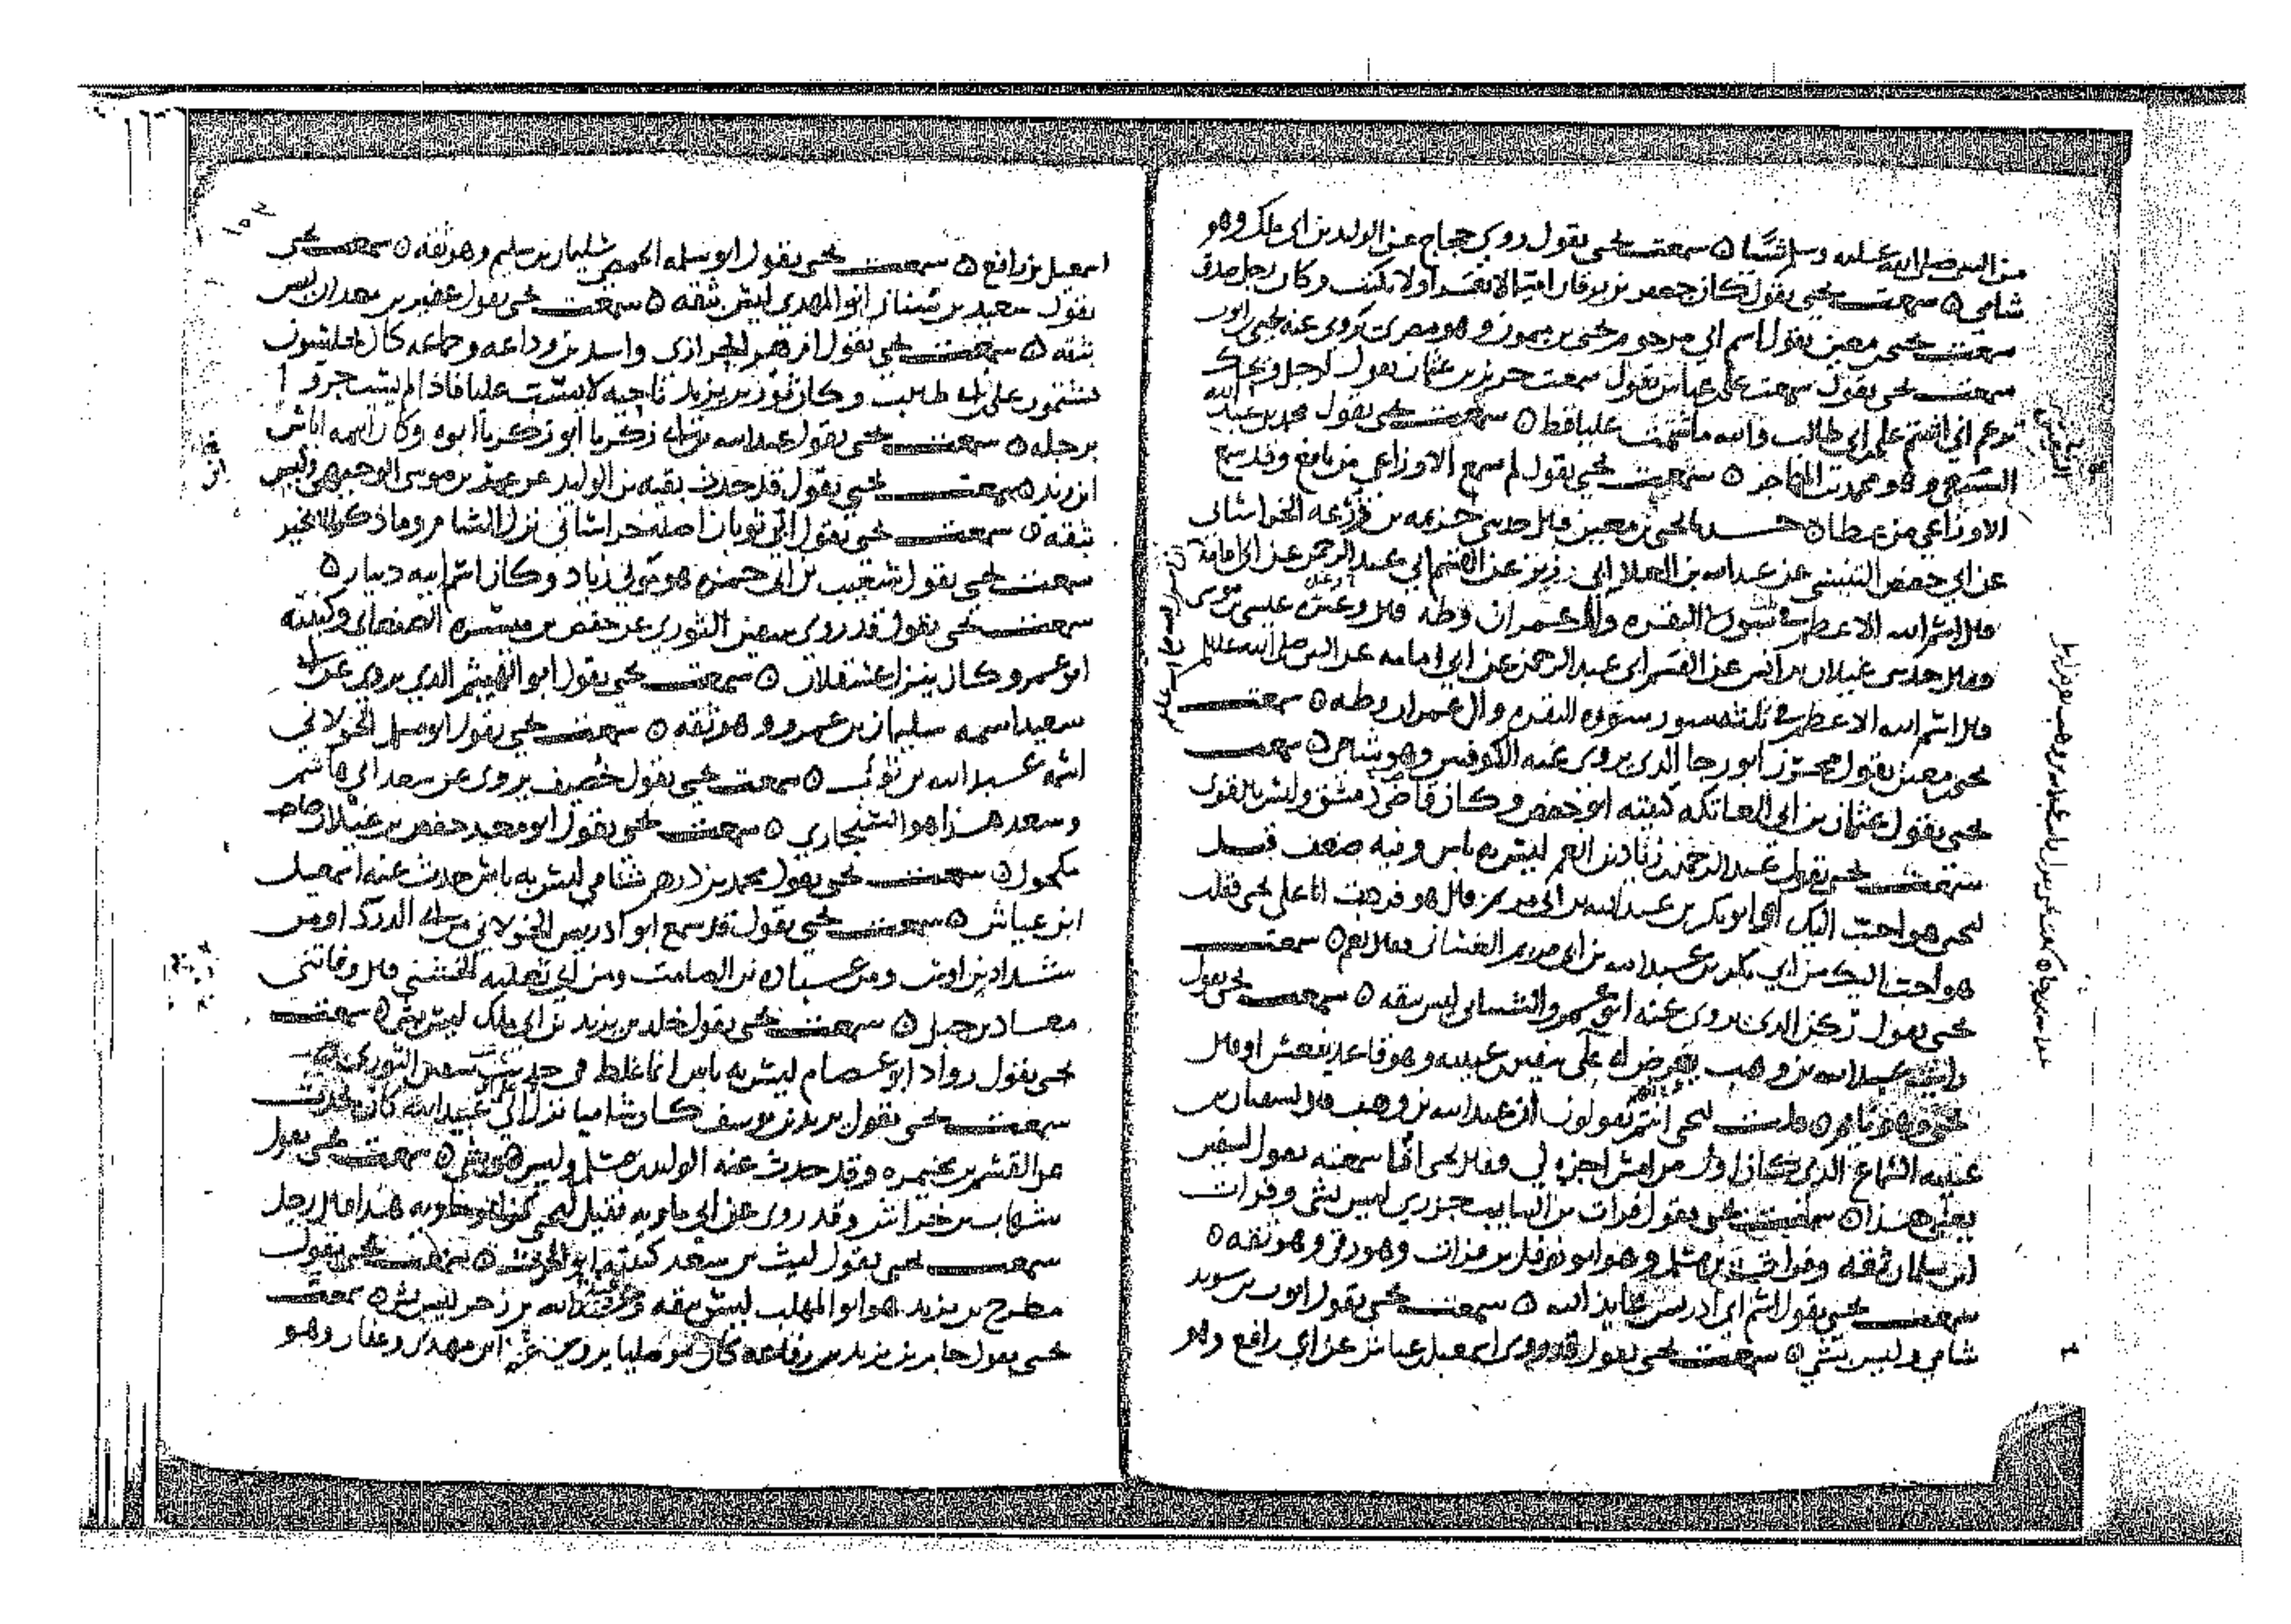 من النبي صلى الله عليه وسلم شيئا ٥ سمعت يحيى يقول روى حجاج عن الوليد بن ابي ملك وهو
شامي ٥ سمعت يحيى يقول كان جعفر بن برقان اميا لا يقرا ولا يكتب وكان رجل صدق
سمعت يحيى بن معين يقول اسم ابي مرحوم يحيى بن ميمون وهو مصري يروي عنه يحيى بن ايوب
سمعت يحيى يقول سمعت علي بن عياش يقول سمعت حريز بن عثمان يقول لرجل ويحك
تزعم اني اشتم علي بن ابي طالب والله ما شتمت عليا قط ٥ سمعت يحيى يقول محمد بن عبد الله
الشعيثي وهو محمد بن المهاجر ٥ سمعت يحيى يقول لم يسمع الاوزاعي من نافع وقد سمع
الاوزاعي من عطا ٥ حدثنا يحيى بن معين قال حدثني خزيمه بن زرعه الخراساني
عن ابي حفص التنيسي عن عبد الله بن العلا ابن زبر عن القسم ابي عبد الرحمن عن ابي امامة
قال اسم الله الاعظم في سور البقره وال عمران وطه قال وعن عيسى بن موسى
وقال حدثني غيلان بن انس عن القسم ابي عبد الرحمن عن ابي امامه عن النبي صلى الله عليه وسلم
قال اسم الله الاعظم في ثلثه سور سوره البقره وال عمران وطه ٥ سمعت
يحيى بن معين يقول محرز ابو رجا الذي يروي عنه الكوفيين وهو شامي ٥ سمعت
يحيى يقول عثمان بن ابي العاتكه كنيته ابو حفص وكان قاضي دمشق وليس بالقوي
سمعت يحيى يقول عبد الرحمن بن زياد بن انعم ليس به باس وفيه ضعف قيل
ليحيى هو احب اليك او ابو بكر بن عبد الله بن ابي مريم قال هو فرددت انا على يحيى فقلت
هو احب اليك من ابي بكر بن عبد الله بن ابي مريم الغساني فقال نعم ٥ سمعت
يحيى يقول ركن الذي يروي عنه ابو عمرو الشيباني ليس بثقه ٥ سمعت يحيى يقول
رايت عبد الله بن وهب يعرض له على سفين بن عيينه وهو قاعد ينعس او قال
يحيى وهو نايم ٥ قلت ليحيى انتم تقولون ان عبد الله بن وهب قال لسفيان بن
عيينه السماع الذي كان اول من امس اجزه لي وقال يحيى انا سمعته يقول لسفين
يعني هذا ٥ سمعت يحيى يقول فرات بن السايب جزري ليس بشي وفرات
ابن سلمان ثقه وهو ابو نوفل بن فرات وهو رقي وهو ثقه ٥
سمعت يحيى يقول اسم ابي ادريس عايذ الله ٥ سمعت يحيى يقول ايوب بن سويد
شامي وليس بشي ٥ سمعت يحيى يقول قد روى اسمعيل بن عياش عن ابي رافع وهو
اسمعيل بن رافع ٥ سمعت يحيى يقول ابو سلمه الحمصي سليمان بن سليم وهو ثقه ٥ سمعت يحيى
يقول سعيد بن سنان ابو المهدي ليس بثقه ٥ سمعت يحيى يقول عفير بن معدان ليس
بثقه ٥ سمعت يحيى يقول ازهر الحرازي واسد بن وداعه وجماعه كانوا يجلسون
يشتمون علي بن ابي طالب وكان ثور بن يزيد ناحيه لا يسب عليا فاذا لم يسب جروا
برجله ٥ سمعت يحيى يقول عبد الله بن ابي زكريا ابو زكريا ابوه وكان اسمه اياس
ابن زيد ٥ سمعت يحيى يقول قد حدث بقيه بن الوليد عن عمر بن موسى الوجيهي وليس
بثقه ٥ سمعت يحيى يقول ابن ثوبان اصله خراساني نزل الشام وما ذكره الا بخير
سمعت يحيى يقول شعيب بن ابي حمزه هو مولى زياد وكان اسم ابيه دينار ٥
سمعت يحيى يقول قد روى سفين الثوري عن حفص بن ميسره الصنعاني وكنيته
ابو عمر وكان ينزل عسقلان ٥ سمعت يحيى يقول ابو الهيثم الذي يروي عن ابي
سعيد اسمه سليمان بن عمرو وهو ثقه ٥ سمعت يحيى يقول ابو مسلم الخولاني
اسمه عبد الله بن ثوب ٥ سمعت يحيى يقول خصيف يروي عن سعد ابي هاشم
وسعد هذا هو السنجاري ٥ سمعت يحيى يقول ابو معيد حفص بن غيلان صاحب
مكحول ٥ سمعت يحيى يقول محمد بن درهم شامي ليس به باس حدث عنه اسمعيل
ابن عياش ٥ سمعت يحيى يقول قد سمع ابو ادريس الخولاني من ابي الدردا ومن
شداد بن اوس ومن عباده بن الصامت ومن ابي ثعلبه الخشني قال وفاتني
معاذ بن جبل ٥ سمعت يحيى يقول خلد بن يزيد بن ابي ملك ليس بشي ٥ سمعت
يحيى يقول رواد ابو عصام ليس به باس انما غلط في حديث سفين الثوري
سمعت يحيى يقول يزيد بن يوسف كان شاميا نزل الى عبيد الله كان يحدث
عن القسم بن مخيمره وقد حدث عنه الوليد بن مسلم وليس هو بشي ٥ سمعت يحيى يقول
شهاب بن خراش وقد روى عن ابي ماويه فقيل ليحيى من ابو ماويه هذا قال رجل
سمعت يحيى يقول ليث بن سعد كنيته ابو الحرث ٥ سمعت يحيى يقول
مطرح بن يزيد هو ابو المهلب ليس بثقه وعبيد الله بن زحر ليس بشي ٥ سمعت
يحيى يقول جابر بن يزيد بن رفاعه كان موصليا يروي عنه ابن مهدي وعفان وهو